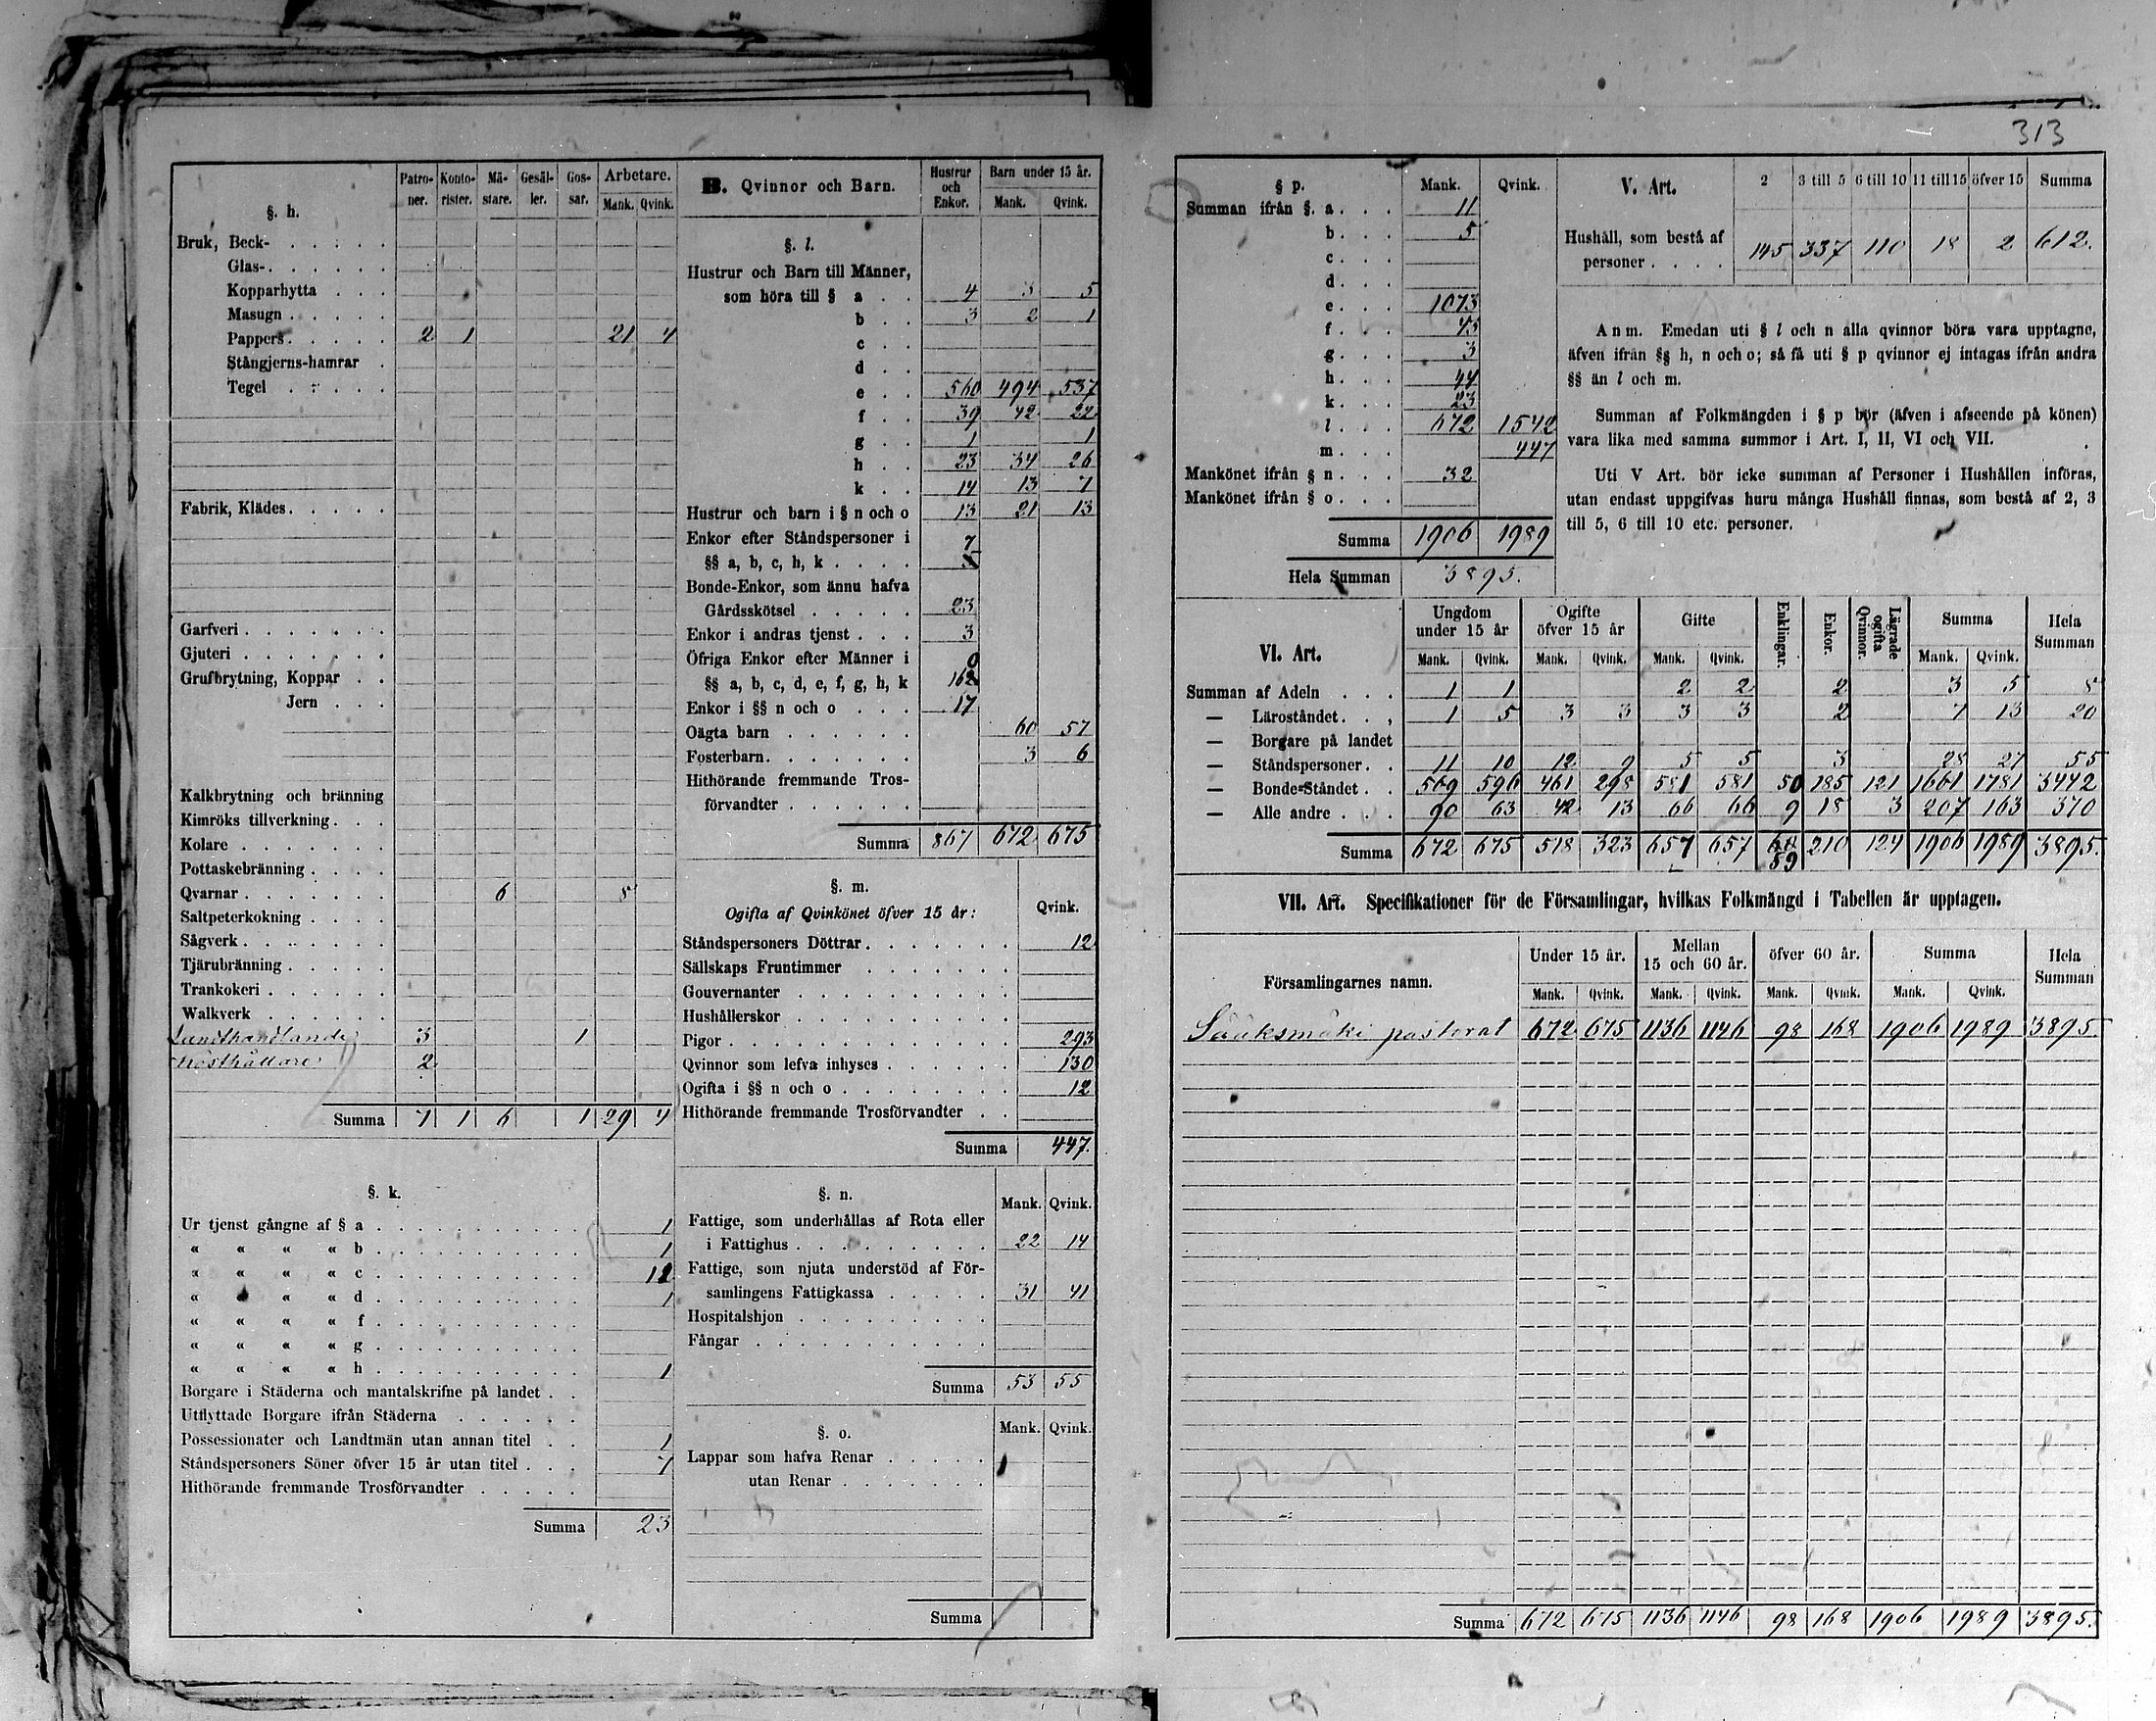 313
§. h. Patroner. Kontorister. Mästare. Gesäller. Gossar. Arbetare. Mank. Qvink.
Bruk, Beck-
Glas-
Kopparhytta
Masugn
Pappers 2 1 21 4
Stångjerns-hamrar
Tegel
Fabrik, Klädes
Garfveri
Gjuteri
Grufbrytning, Koppar
Jern
Kalkbrytning och bränning
Kimröks tillverkning
Kolare
Pottaskebränning
Qvarnar 6 8
Saltpeterkokning
Sågverk
Tjärubränning
Trankokeri
Walkverk
Landthandlande 3 1
2
Summa 7 1 6 1 29 4
§. k.
Ur tjenst gångne af § a 1
« « « « b 1
« « « « c 12
« « « « d 1
« « « « f
« « « « g
« « « « h 1
Borgare i Städerna och mantalskrifne på landet
Utflyttade Borgare ifrån Städerna
Possessionater och Landtmän utan annan titel 1
Ståndspersoners Söner öfver 15 år utan titel 7
Hithörande fremmande Trosförvandter
Summa 23
B. Qvinnor och Barn. Hustrur och Enkor. Barn under 15 år. Mank. Qvink.
§. l.
Hustrur och Barn till Männer,
som höra till § a 4 3 5
b 3 2 1
c
d
e 560 494 537
f 39 42 22
g 1 1
h 23 34 26
k 14 13 7
Hustrur och barn i § n och o 13 21 13
Enkor efter Ståndspersoner i 7
§§ a, b, c, h, k
Bonde-Enkor, som ännu hafva
Gårdsskötsel 23
Enkor i andras tjenst 3
Öfriga Enkor efter Männer i 0
§§ a, b, c, d, e, f, g, h, k 162
Enkor i §§ n och o 17
Oägta barn 60 57
Fosterbarn 3 6
Hithörande fremmande Tros-
förvandter
Summa 867 672 675
§. m.
Ogifta af Qvinkönet öfver 15 år: Qvink.
Ståndspersoners Döttrar 12
Sällskaps Fruntimmer
Gouvernanter
Hushållerskor
Pigor 293
Qvinnor som lefva inhyses 130
Ogifta i §§ n och o 12
Hithörande fremmande Trosförvandter
Summa 447.
§. n. Mank. Qvink.
Fattige, som underhållas af Rota eller
i Fattighus 22 14
Fattige, som njuta understöd af För-
samlingens Fattigkassa 31 41
Hospitalshjon
Fångar
Summa 53 55
§. o. Mank. Qvink.
Lappar som hafva Renar
utan Renar
Summa
§ p. Mank. Qvink.
Summan ifrån §. a 11
b 5
c
d
e 1073
f 43
g 3
h 44
k 23
l 672 1542
m 447
Mankönet ifrån § n 32
Mankönet ifrån § o
Summa 1906 1989
Hela Summan 3895.
V. Art. 2 3 till 5 6 till 10 11 till 15 öfver 15 Summa
Hushåll, som bestå af
personer 145 337 110 18 2 612.
Anm. Emedan uti § l och n alla qvinnor böra vara upptagne,
äfven ifrån §§ h, n och o; så få uti § p qvinnor ej intagas ifrån andra
§§ än l och m.
Summan af Folkmängden i § p bör (äfven i afseende på könen)
vara lika med samma summor i Art. I, II, VI och VII.
Uti V Art. bör icke summan af Personer i Hushållen införas,
utan endast uppgifvas huru många Hushåll finnas, som bestå af 2, 3
till 5, 6 till 10 etc. personer.
VI. Art. Ungdom under 15 år Ogifte öfver 15 år Gifte Enklingar. Enkor. Lägrade ogifta Qvinnor. Summa Hela Summan
Mank. Qvink. Mank. Qvink. Mank. Qvink. Mank. Qvink.
Summan af Adeln 1 1 2 2 2 3 5 8
— Läroståndet 1 5 3 3 3 3 2 7 13 20
— Borgare på landet
— Ståndspersoner 11 10 12 9 5 5 3 28 27 55
— Bonde-Ståndet 569 596 461 298 581 581 50 185 121 1661 1781 3442
— Alle andre 90 63 42 13 66 66 9 18 3 207 163 370
Summa 672 675 518 323 657 657 59 210 124 1906 1989 3895.
VII. Art. Specifikationer för de Församlingar, hvilkas Folkmängd i Tabellen är upptagen.
Församlingarnes namn. Under 15 år. Mellan 15 och 60 år. öfver 60 år. Summa Hela Summan
Mank. Qvink. Mank. Qvink. Mank. Qvink. Mank. Qvink.
Sääksmäki pastorat 672 675 1136 1146 98 168 1906 1989 3895.
Summa 672 675 1136 1146 98 168 1906 1989 3895.